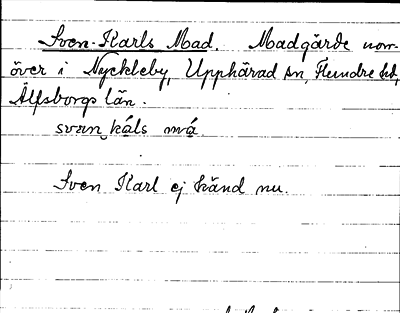 Sven-Karls Mad. Madgärde norr-
över i Nyckleby, Upphärad sn, Flundre hd,
Älfsborgs län.
sven káls má
Sven Karl ej känd nu.